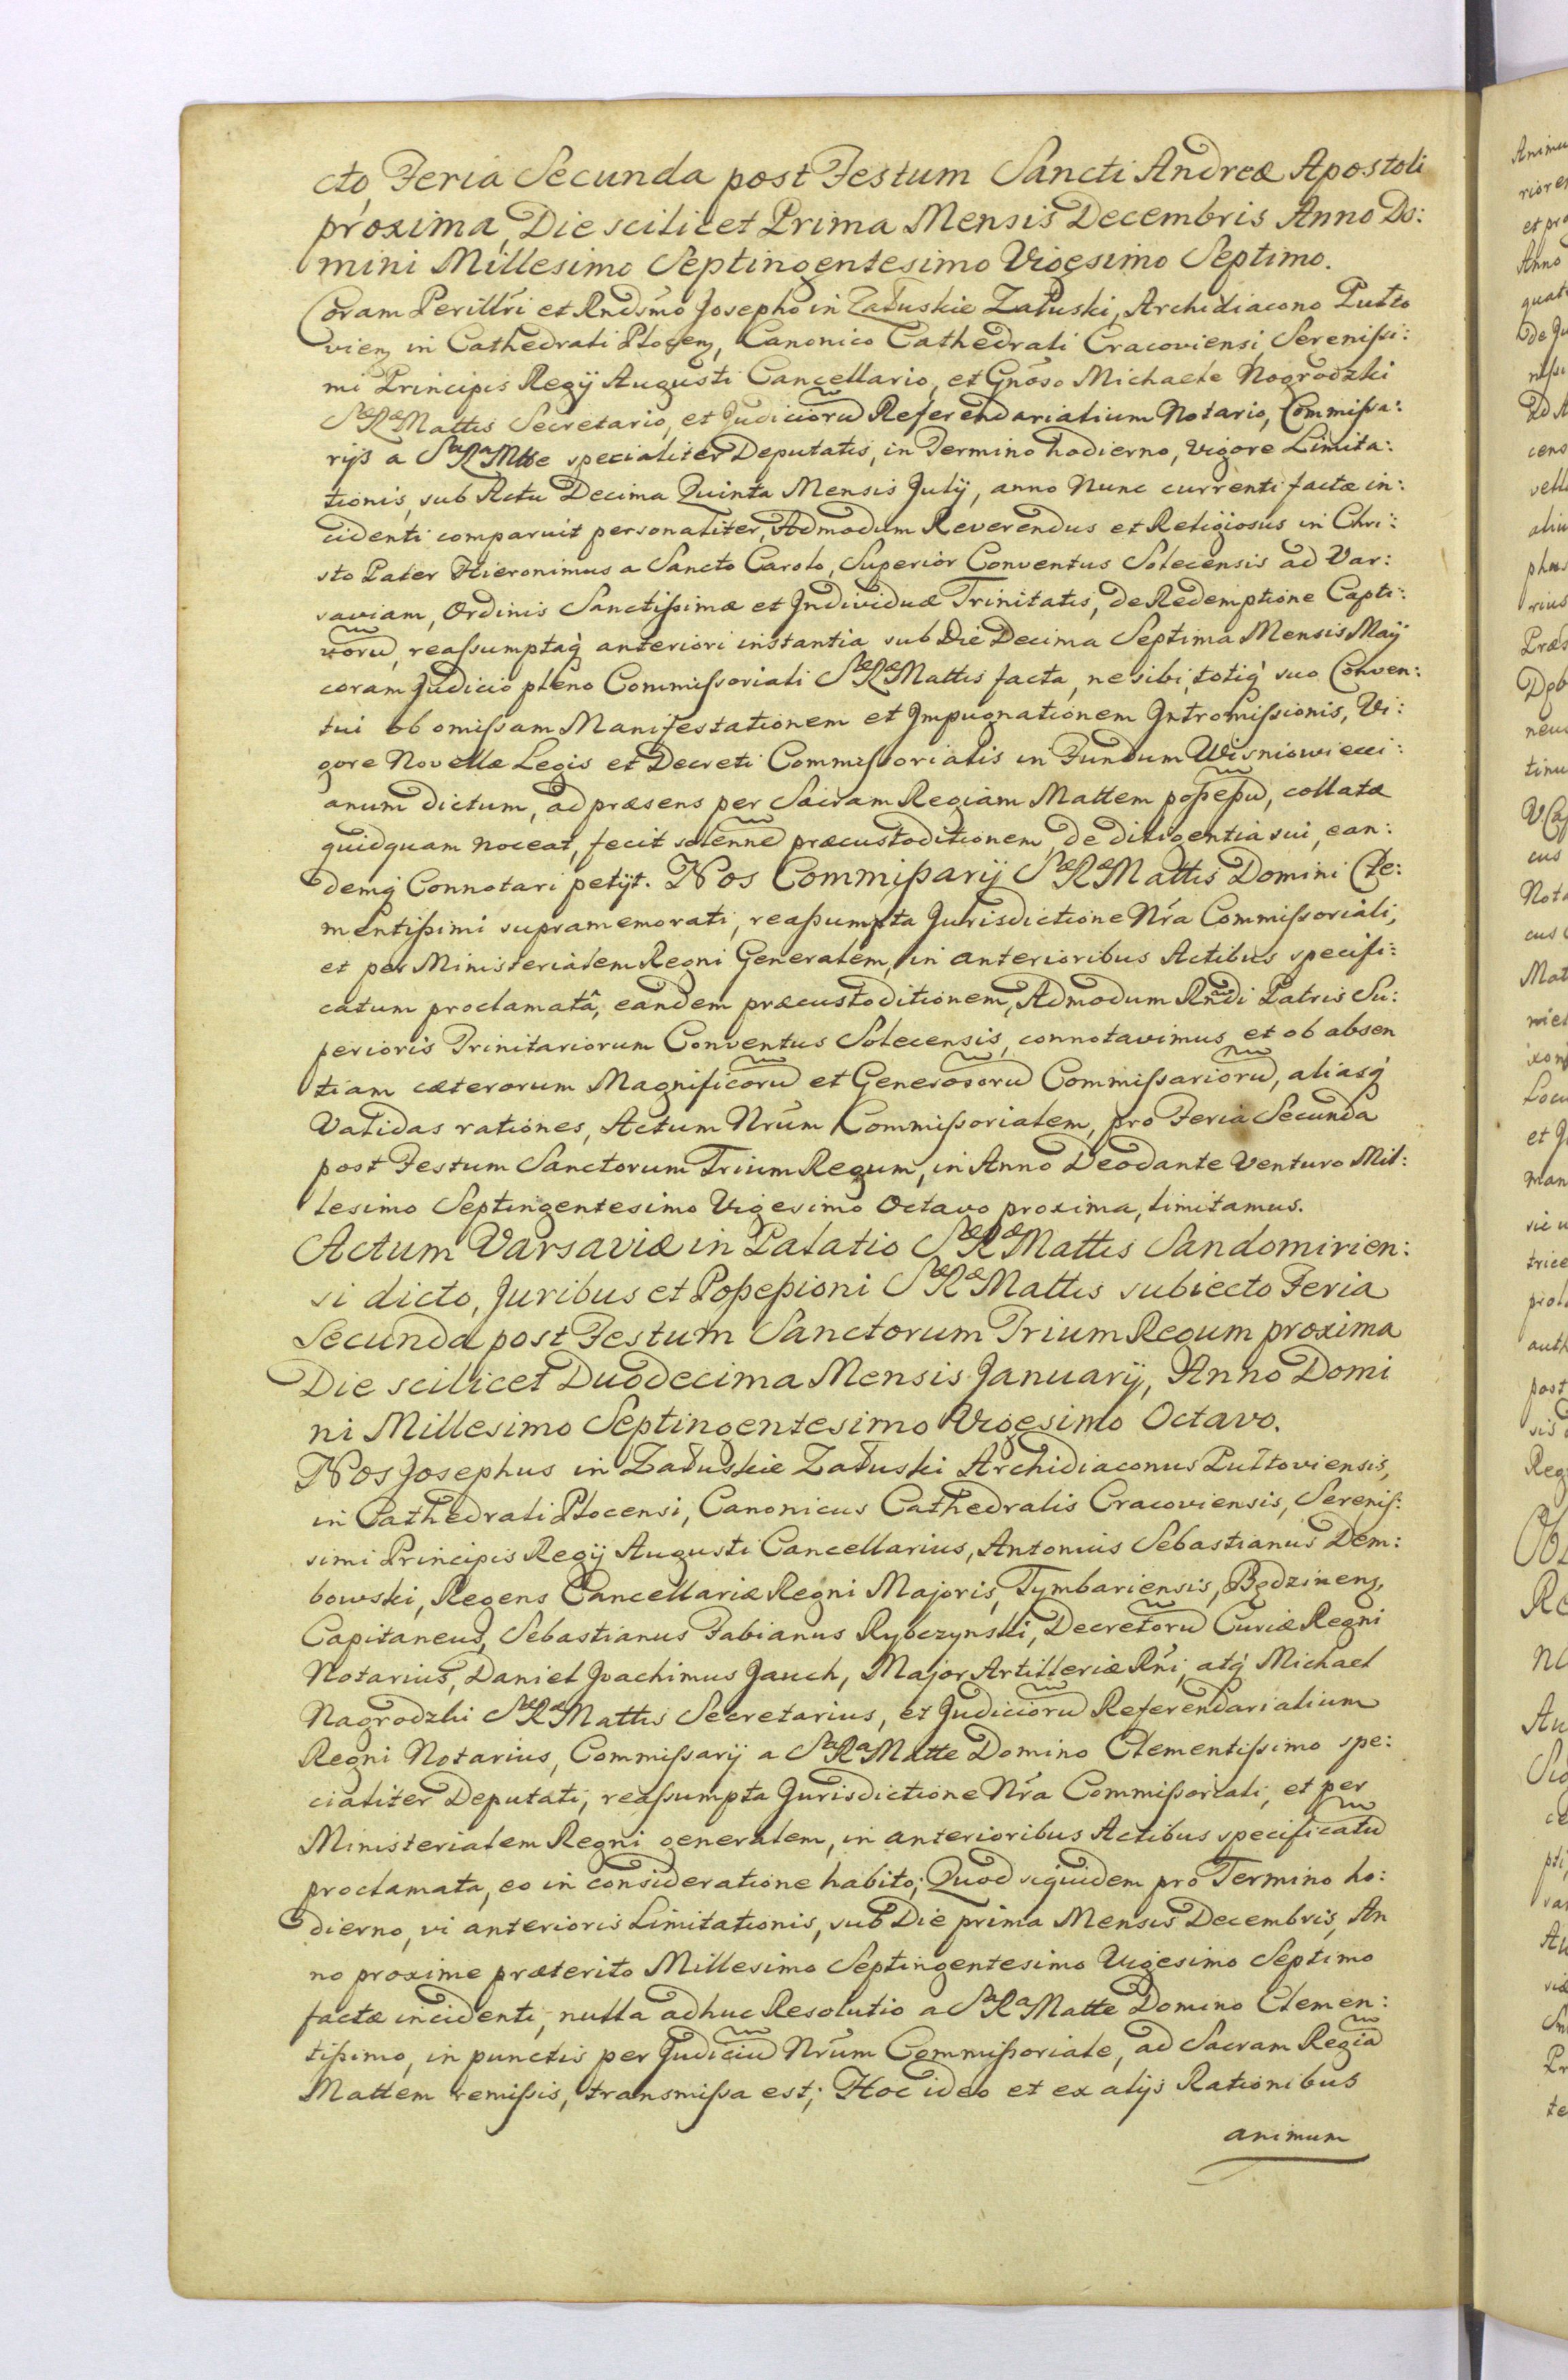 cto, Feria Secunda post Festum Sancti Andreæ Apostoli
proxima, Die scilicet Prima Mensis Decembris Anno Do:
mini Millesimo Septingentesimo Vigesimo Septimo.
Coram Perillri et Rndsmo Josepho in Załuskie Załuski, Archidiacono Pułto
vien in Cathedrali Plocen, Canonico Cathedrali Cracoviensi, Serenissi:
mi Principis Regÿ Augusti Cancellario, et Gnoso Michaele Nogrodzki
SæRæMattis Secretario, et Judiciorū Referendarialium Notario, Commissa:
rÿs a SaRaMtte specialiter Deputatis, in Termino hodierno, vigore Limita:
tionis, sub Actu Decima Quinta Mensis Julÿ, anno Nunc currenti factæ in:
cidenti comparuit personaliter, Admodum Reverendus et Religiosus in Chri:
sto Pater Hieronimus a Sancto Carolo, Superior Conventus Solecensis ad Var:
saviam, Ordinis Sanctissimæ et Individuæ Trinitatis, de Redemptione Capti:
vorū, reassumptaq̀ anteriori instantia sub Die Decima Septima Mensis Maÿ
coram Judicio pleno Commissoriali SæRæMattis facta, ne sibi, totiq̀ suo Conven:
tui ob omissam Manifestationem et Impugnationem Intromissionis, Vi:
gore Novellæ Legis et Decreti Commissorialis in Fundum Wisniowieci:
anum dictum, ad præsens per Sacram Regiam Mattem possessū, collatæ
quidquam noceat, fecit solennē præcustoditionem, de diligentia sui, ean:
demq̀ Connotari petÿt. Nos Commissarÿ SæRæMattis Domini Cle:
mentissimi supramemorati, reassumpta Jurisdictione Nra Commissoriali,
et per Ministerialem Regni Generalem, in anterioribus Actibus specifi:
catum proclamatâ, eandem præcustoditionem, Admodum Rndi Patris Su:
perioris Trinitariorum Conventus Solecensis, connotavimus et ob absen
tiam cæterorum Magnificorū et Generosorū Commissariorū, aliasq̀
Validas rationes, Actum Nrum Commissorialem, pro Feria Secunda
post Festum Sanctorum Trium Regum, in Anno Deo dante Venturo Mil:
lesimo Septingentesimo Vigesimo Octavo proxima, limitamus.
Actum Varsaviæ in Palatio SæRæMattis Sandomirien:
si dicto, Juribus et Possessioni SæRæMattis subiecto Feria
Secunda post Festum Sanctorum Trium Regum proxima
Die scilicet Duodecima Mensis Januarÿ, Anno Domi
ni Millesimo Septingentesimo Vigesimo Octavo.
Nos Josephus in Załuskie Załuski Archidiaconus Pułtoviensis,
in Cathedrali Plocensi, Canonicus Cathedralis Cracoviensis, Serenis:
simi Principis Regÿ Augusti Cancellarius, Antonius Sebastianus Dem:
bowski, Regens Cancellariæ Regni Majoris, Tymbariensis, Będzinen,
Capitaneus, Sebastianus Fabianus Rybczynski, Decretorū Curiæ Regni
Notarius, Daniel Joachimus Jauch, Major Artilleriæ Rni, atq̀ Michael
Nagrodzki SæRæMattis Secretarius, et Judiciorū Referendarialium
Regni Notarius, Commissarÿ a SaRaMatte Domino Clementissimo spe:
cialiter Deputati, reassumpta Jurisdictione Nra Commissoriali, et per
Ministerialem Regni generalem, in anterioribus Actibus specificatū
proclamata, eo in consideratione habito; Quod siquidem pro Termino ho:
dierno, vi anterioris Limitationis, sub Die prima Mensis Decembris, An
no proxime præterito Millesimo Septingentesimo Vigesimo Septimo
factæ incidenti, nulla adhuc Resolutio a SaRaMatte Domino Clemen:
tissimo, in punctis per Judiciū Nrum Commissoriale, ad Sacram Regiā
Mattem remissis, transmissa est; Hoc ideo et ex alÿs Rationibus
animum